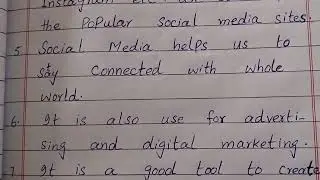 Instagram etc. are
the PoPular Social media sites.
5. Social Media helps us to
stay connected with whole
world.
6. It is also use for adverti-
sing and digital marketing.
7. It is a good tool to create